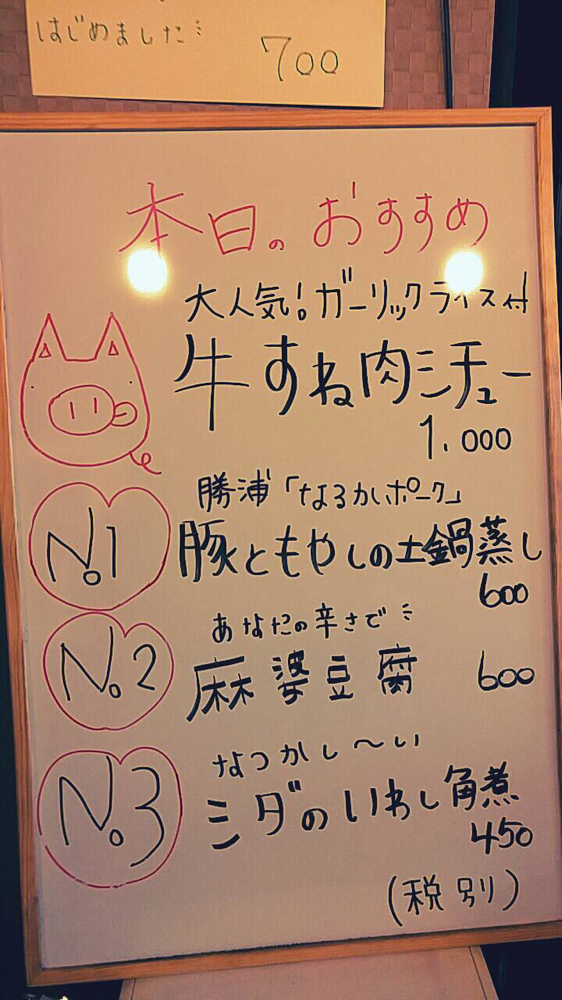 はじめました
700
本日のおすすめ
大人気!ガーリックライス付
牛すね肉シチュー
1,000
勝浦「なるかいポーク」
No.1 豚ともやしの土鍋蒸し
600
あなたの辛さで
No.2 麻婆豆腐 600
なつかし〜い
No.3 ミダのいわし角煮
450
(税別)